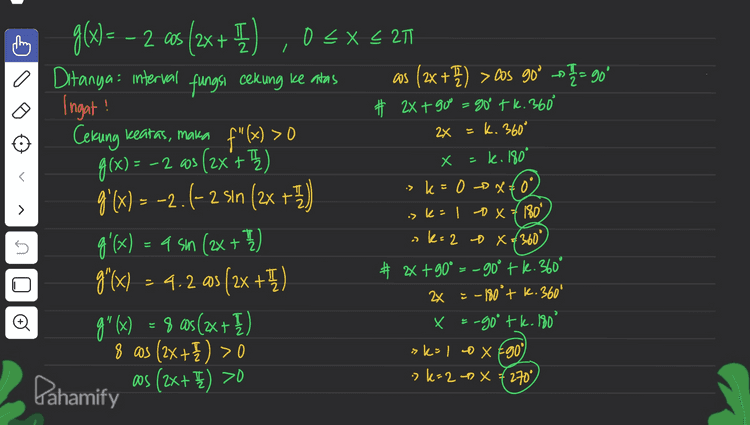 g(x) = - 2 cos (2x + π/2) , 0 ≤ x ≤ 2π
Ditanya : interval fungsi cekung ke atas
Ingat !
Cekung keatas, maka f"(x) > 0
g(x) = - 2 cos (2x + π/2)
g'(x) = -2 . (- 2 sin (2x + π/2))
g'(x) = 4 sin (2x + π/2)
g"(x) = 4 . 2 cos (2x + π/2)
g"(x) = 8 cos (2x + π/2)
8 cos (2x + π/2) > 0
cos (2x + π/2) > 0
cos (2x + π/2) > cos 90° → π/2 = 90°
# 2x + 90° = 90° + k . 360°
2x = k . 360°
x = k . 180°
> k = 0 → x = 0°
> k = 1 → x = 180°
> k = 2 → x = 360°
# 2x + 90° = - 90° + k . 360°
2x = - 180° + k . 360°
x = - 90° + k . 180°
> k = 1 → x = 90°
> k = 2 → x = 270°
Pahamify